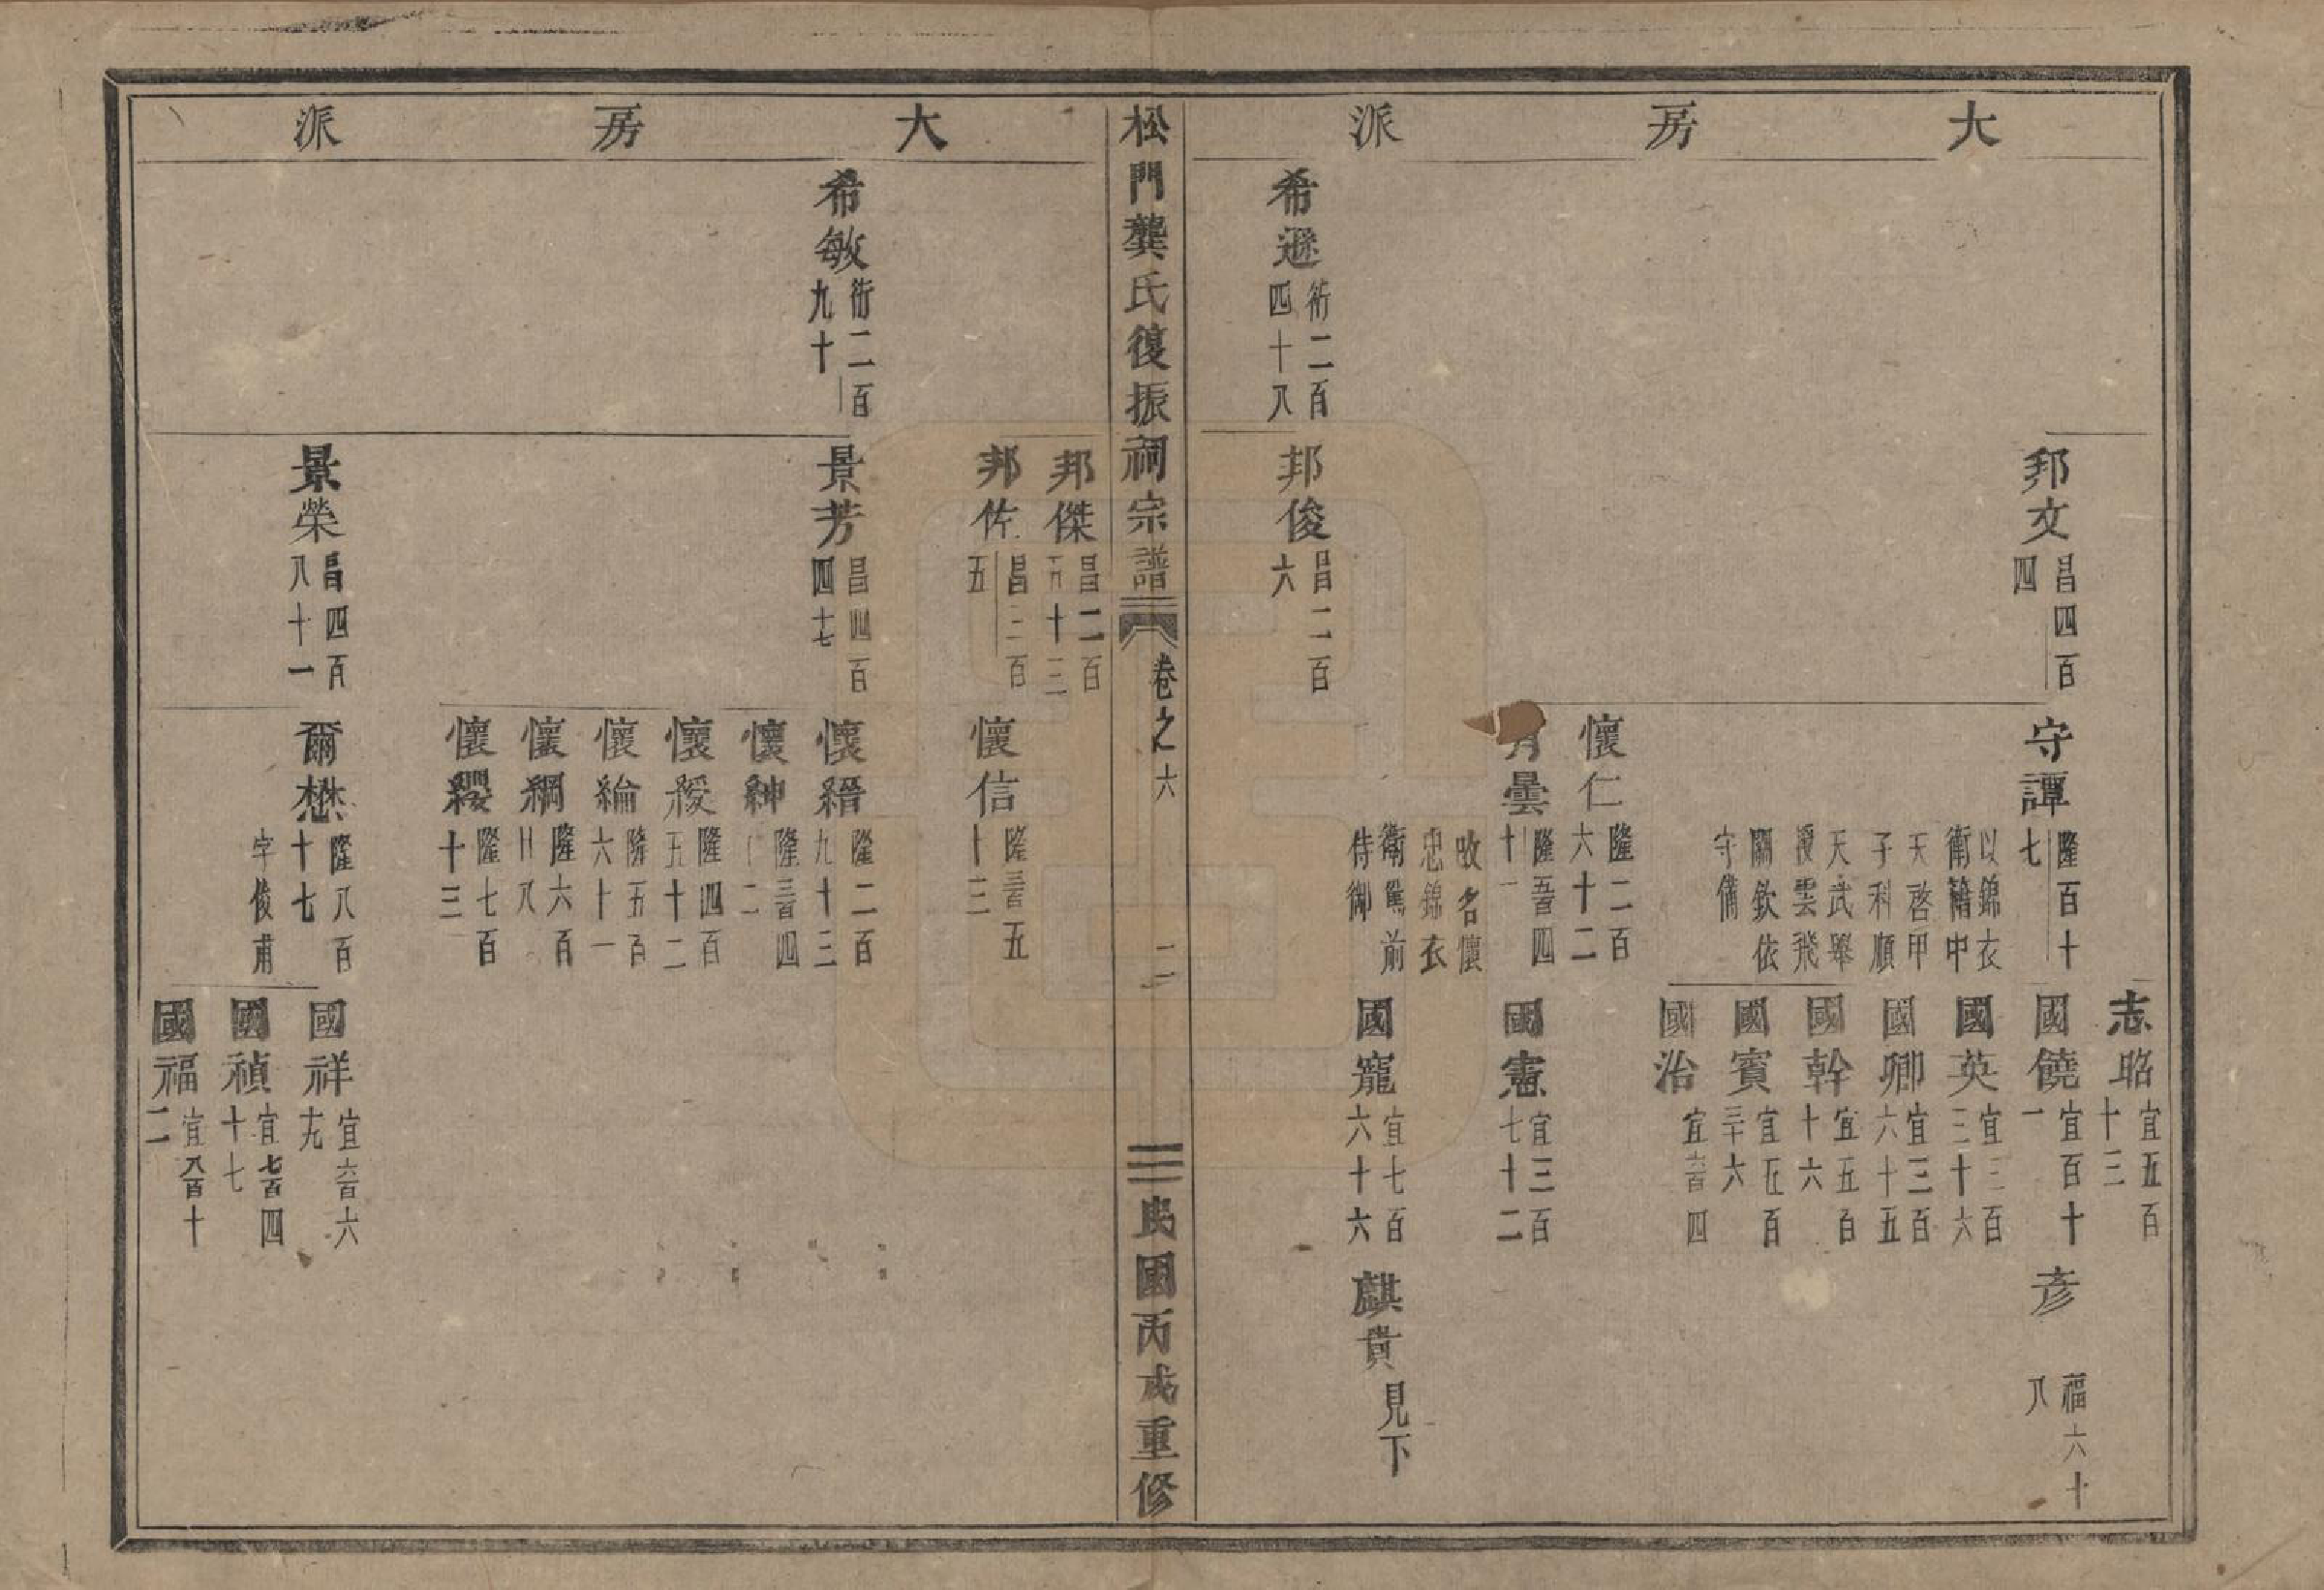 大房派
希遜
術二百
四十八
邦文
昌四百
四
邦俊
昌二百
六
守譚
隆百十
七
以錦衣
衛籍中
天啓甲
子科順
天武舉
授雲飛
關欽依
守備
懷仁
隆二百
六十二
曇
隆四
十一
改名懷
忠錦衣
衛駕前
侍御
志昭
宜五百
十三
國饒
宜百十
一
國英
宜三百
三十六
國卿
宜三百
六十五
國幹
宜五百
十六
國賓
宜五百
三十六
國治
宜六百四
國憲
宜三百
七十二
國寵
宜七百
六十六
彦
福六十
八
麒貴
見下
松門龔氏復振祠宗譜
卷之六
二
民國丙戌重修
大房派
希敏
術二百
九十
邦傑
昌二百
五十三
邦佐
昌三百
五
景芳
昌四百
四十七
景榮
昌四百
八十一
懷信
隆三百五
十三
懷縉
隆二百
九十三
懷紳
隆三百四
懷綬
隆四百
五十二
懷綸
隆五百
六十一
懷綱
隆六百
廿八
懷纓
隆七百
十三
爾懋
隆八百
十七
字俊甫
國祥
宜六百六
十九
國禎
宜七百四
十七
國福
宜八百十
二